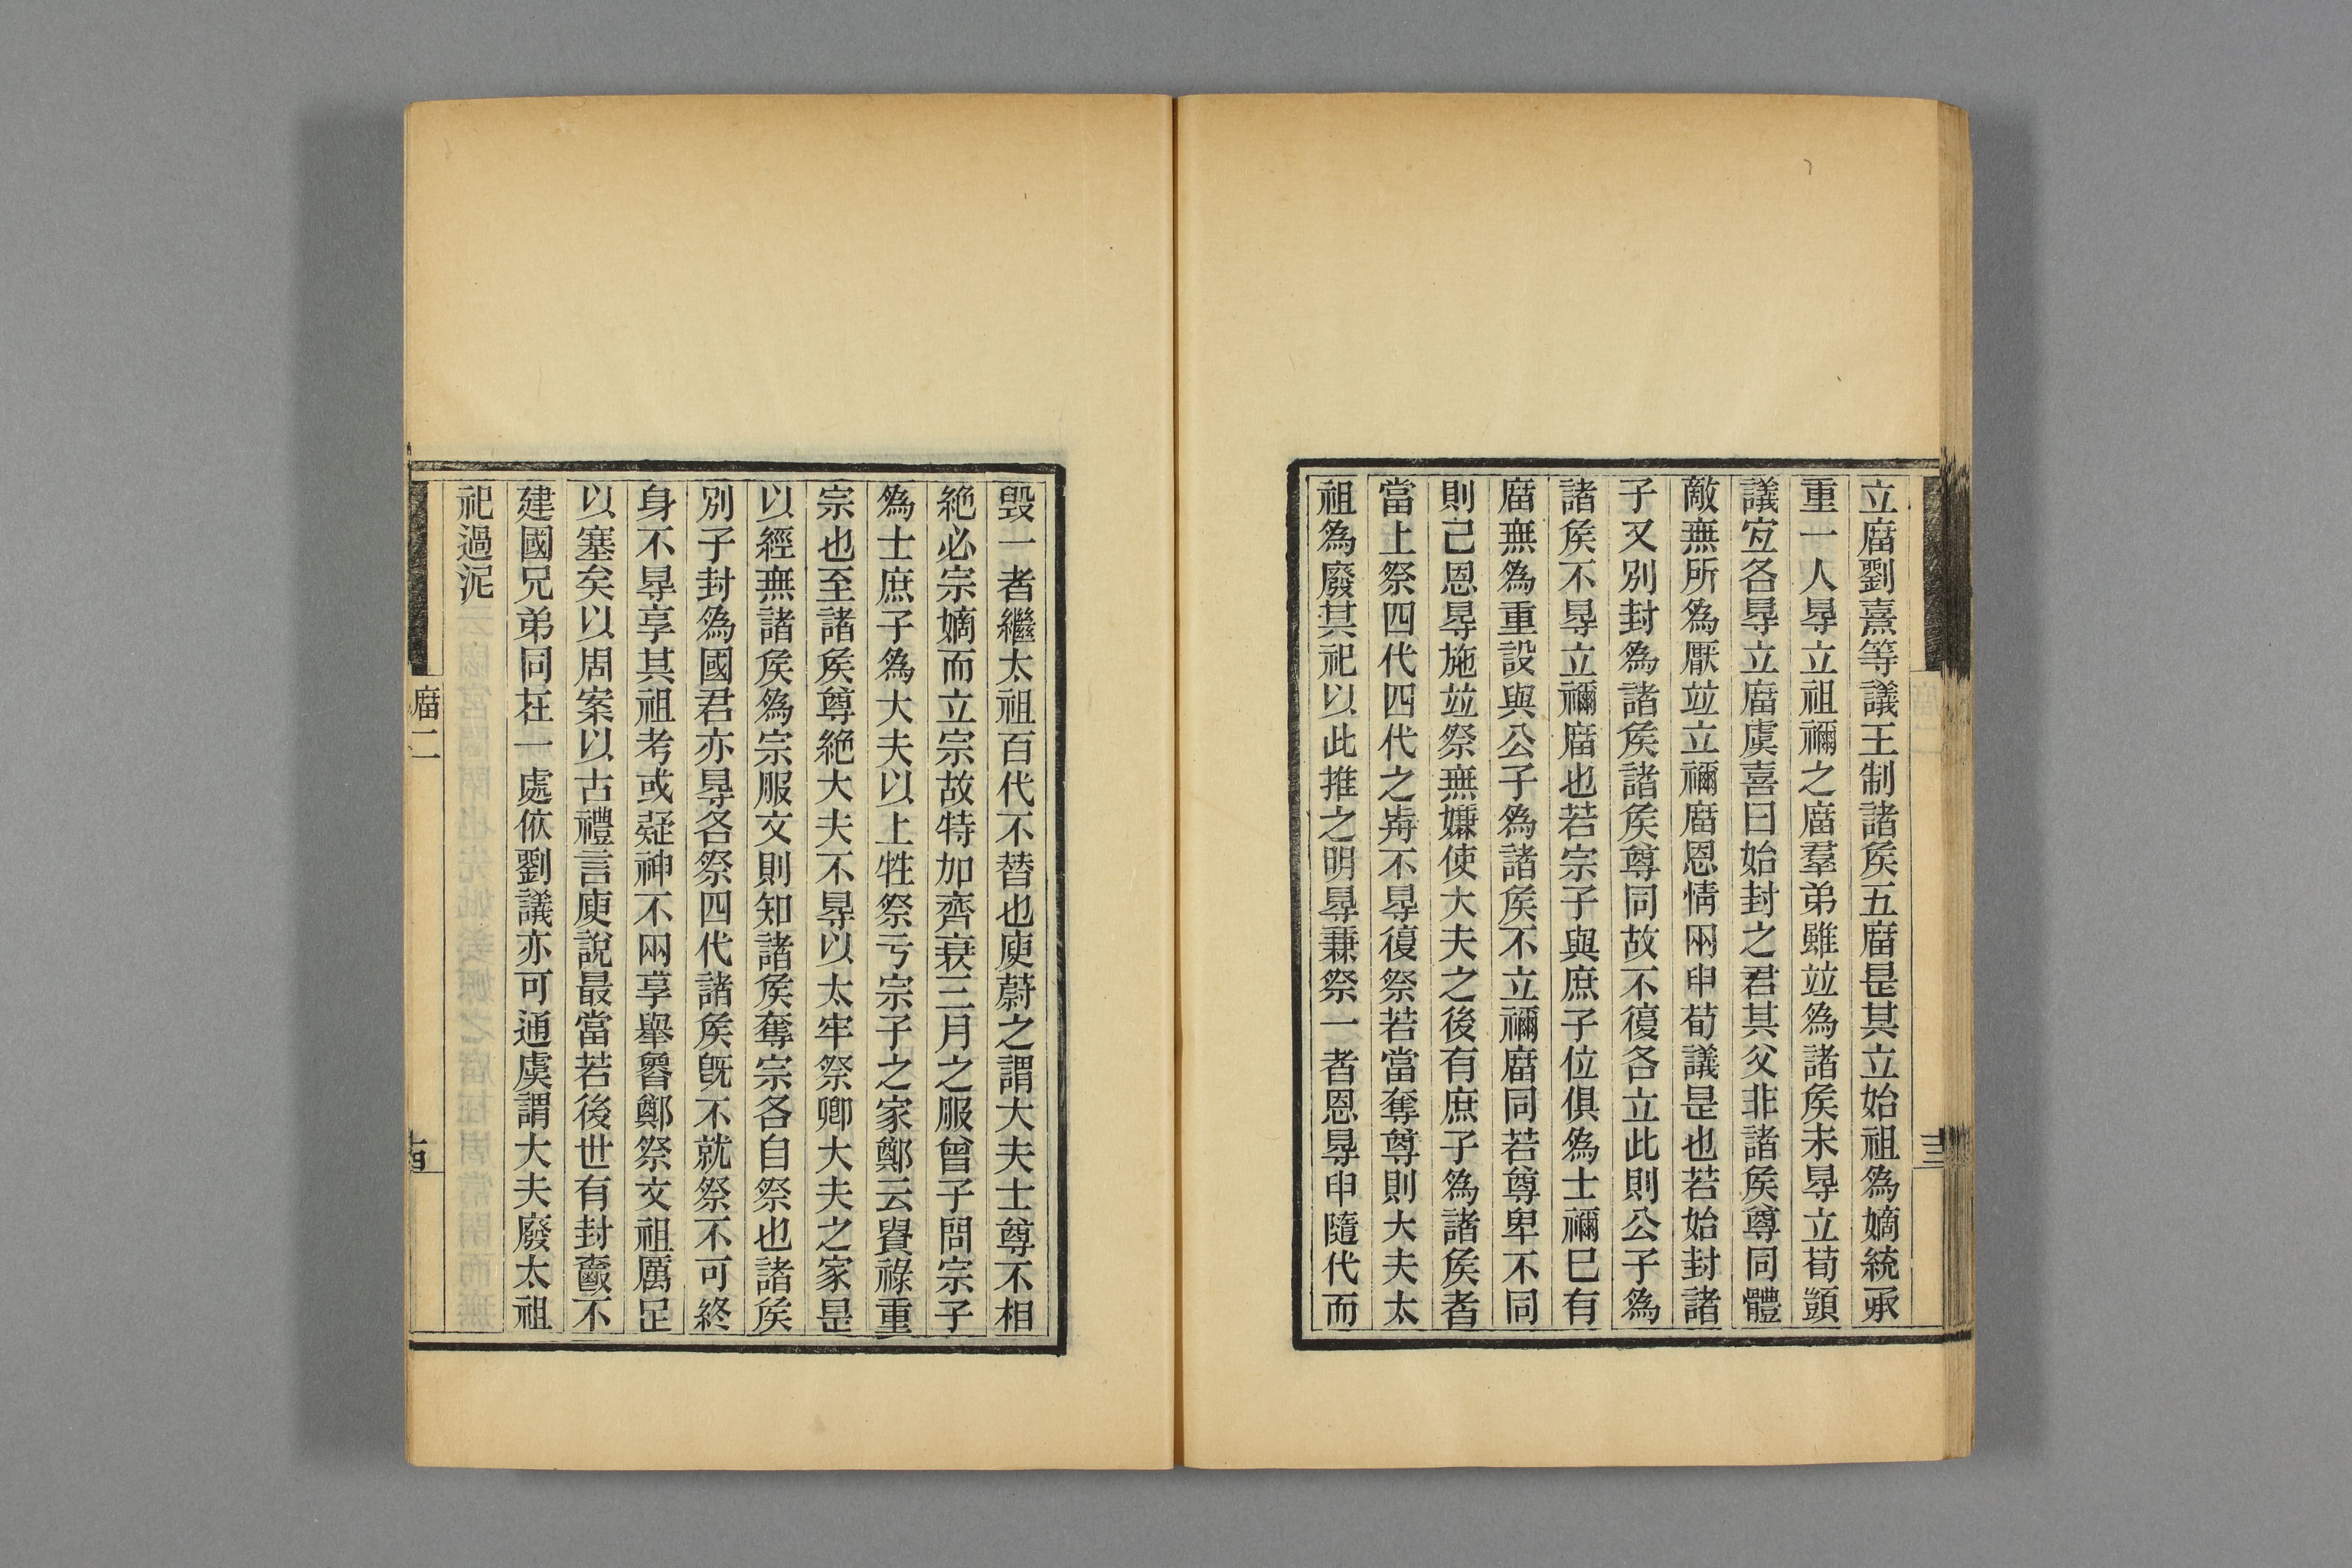 立庿劉熹等議王制諸矦五庿是其立始祖為嫡統承
重一人㝵立祖禰之庿羣弟雖竝為諸矦未㝵立荀顗
議宐各㝵立庿虞喜曰始封之君其父非諸矦尊同體
敵無所為厭竝立禰庿恩情兩申荀議是也若始封諸
子又別封為諸矦諸矦尊同故不復各立此則公子為
諸矦不㝵立禰庿也若宗子與庶子位俱為士禰巳有
庿無為重設與公子為諸矦不立禰庿同若尊卑不同
則己恩㝵施竝祭無嫌使大夫之後有庶子為諸矦者
當上祭四代四代之歬不㝵復祭若當奪尊則大夫太
祖為廢其祀以此推之明㝵兼祭一者恩㝵申隨代而
毀一者繼太祖百代不替也庾蔚之謂大夫士尊不相
絶必宗嫡而立宗故特加齊衰三月之服曾子問宗子
為士庶子為大夫以上牲祭亏宗子之家鄭云貴祿重
宗也至諸矦尊絶大夫不㝵以太牢祭卿大夫之家是
以經無諸矦為宗服文則知諸矦奪宗各自祭也諸矦
別子封為國君亦㝵各祭四代諸矦旣不就祭不可終
身不㝵享其祖考或疑神不兩享舉魯鄭祭文祖厲足
以塞矣以周案以古禮言庾說最當若後世有封爵不
建國兄弟同在一處依劉議亦可通虞謂大夫廢太祖
祀過泥
庿二
十四
十三